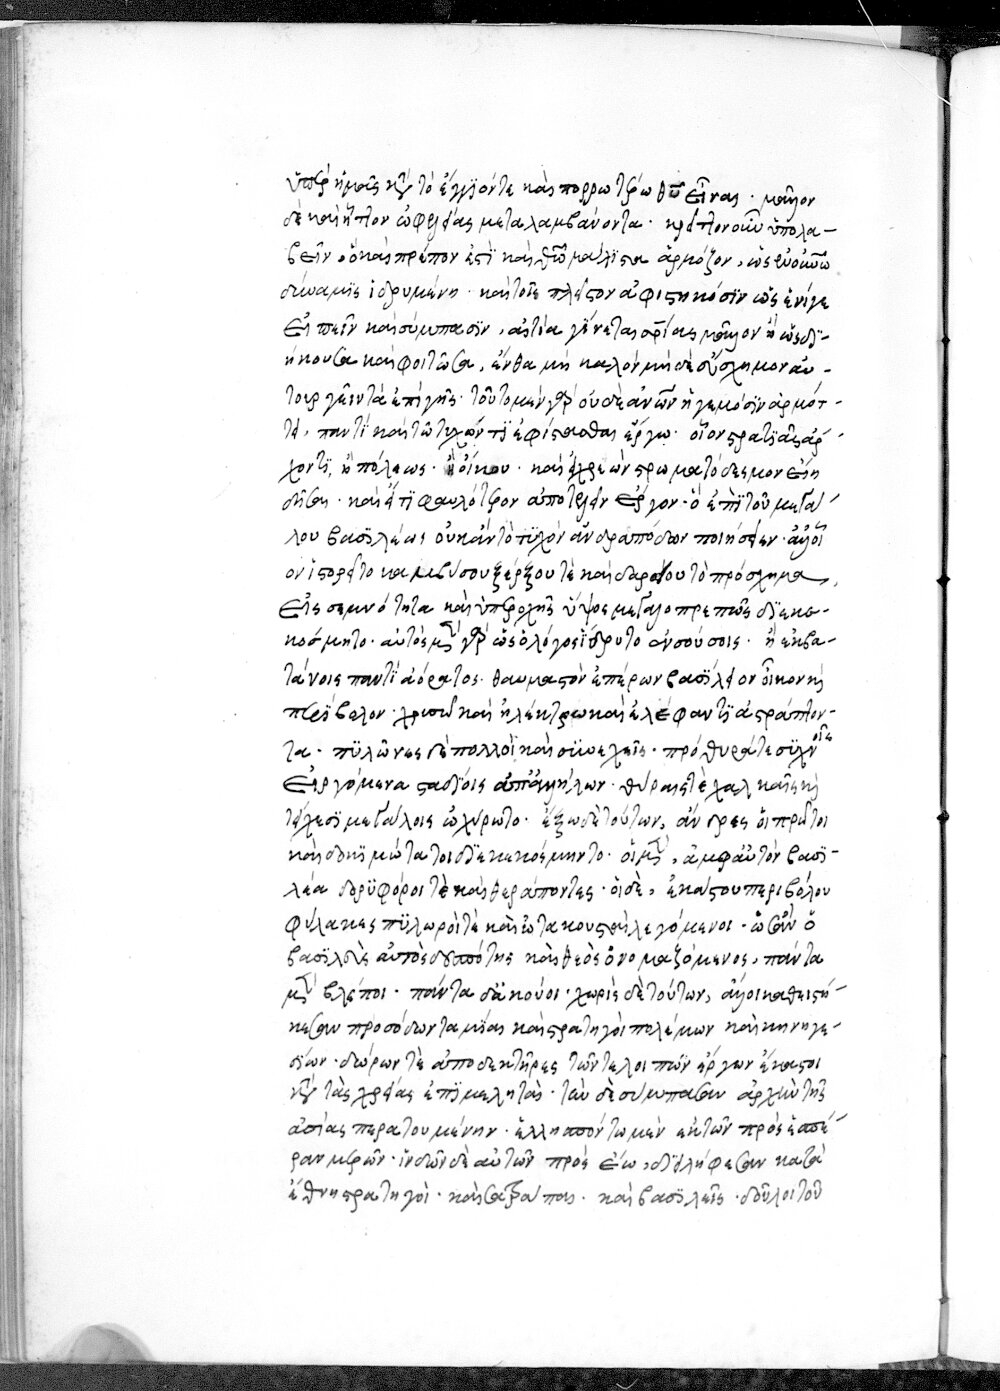 ὑπὲρ ἡμᾶς κατὰ τὸ ἔγγιόν τε καὶ πορρωτέρω θεοῦ εἶναι · μᾶλλον
δὲ καὶ ἧττον ὠφελείας μεταλαμβάνοντα · κρεῖττον οὖν ὑπολα-
βεῖν, ὃ καὶ πρέπον ἐστὶ καὶ θεῷ μάλιστα ἁρμόζον, ὡς ἡ ἐν οὐρανῷ
δύναμις ἱδρυμένη · καὶ τοῖς πλεῖστον ἀφεστηκόσιν ὡς ἑνί γε
εἰπεῖν καὶ σύμπασιν, αἰτία γίνεται σωτηρίας μᾶλλον ἢ ὡς δι-
ήκουσα καὶ φοιτῶσα, ἔνθα μὴ καλὸν μὴ δὲ εὔσχημον αὐ-
τουργεῖν τὰ ἐπὶ γῆς · τοῦτο μὲν γὰρ οὐδὲ ἀνθρώπων ἡγεμόσιν ἁρμότ-
τει, παντὶ καὶ τῷ τυχόντι ἐφίστασθαι ἔργῳ · οἷον στρατιᾶς ἄρ-
χοντι, ἢ πόλεως · ἢ οἴκου · καὶ εἰ χρεὼν στρωματόδεσμον εἴη
δῆσαι · καὶ εἴ τι φαυλότερον ἀποτελεῖν ἔργον · ὃ ἐπὶ τοῦ μεγά-
λου βασιλέως οὐκ ἂν τὸ τυχὸν ἀνδράποδον ποιήσειεν · ἀλλ' οἷ-
ον ἱστορεῖτο καμβύσου ξέρξου τε καὶ δαρείου τὸ πρόσχημα,
εἰς σεμνότητα καὶ ὑπεροχῆς ὕψος μεγαλοπρεπῶς διεκε-
κόσμητο · αὐτὸς μὲν γὰρ ὡς ὁ λόγος ἵδρυτο ἐν σούσοις · ἢ ἐκβα-
τάνοις παντὶ ἀόρατος · θαυμαστὸν ἐπέχων βασίλειον οἶκον καὶ
περίβολον · χρυσῷ καὶ ἠλέκτρῳ καὶ ἐλέφαντι ἀστράπτον-
τα · πυλῶνες δὲ πολλοὶ καὶ συνεχεῖς · πρόθυρά τε συχνοῖς
εἰργόμενα σταδίοις ἀπ' ἀλλήλων · θύραις τὲ χαλκαῖς καὶ
τείχεσι μεγάλοις ὠχύρωτο · ἔξω δὲ τούτων, ἄνδρες οἱ πρῶτοι
καὶ δοκιμώτατοι διεκεκόσμηντο · οἱ μὲν, ἀμφ' αὐτὸν βασι-
λέα δορυφόροι τὲ καὶ θεράποντες · οἱ δὲ, ἑκάστου περιβόλου
φύλακες πυλωροί τὲ καὶ ὠτακουσταὶ λεγόμενοι · ὡς ἂν ὁ
βασιλεὺς αὐτὸς δεσπότης καὶ θεὸς ὀνομαζόμενος, πάντα
μὲν βλέποι · πάντα δὲ ἀκούοι · χωρὶς δὲ τούτων, ἄλλοι καθειστή-
κεσαν προσόδων ταμίαι καὶ στρατηγοὶ πολέμων καὶ κυνηγε-
σίων · δώρων τὲ ἀποδεκτῆρες τῶν τε λοιπῶν ἔργων ἕκαστοι
κατὰ τὰς χρείας ἐπιμεληταὶ · τὴν δὲ σύμπασαν ἀρχὴν τῆς
ἀσίας περατουμένην · ἑλλησπόντῳ μὲν ἐκ τῶν πρὸς ἑσπέ-
ραν μερῶν · ἰνδῷ δὲ αὐτῶν πρὸς ἕω, διειλήφεσαν κατὰ
ἔθνη στρατηγοὶ · καὶ σατράπαι · καὶ βασιλεῖς · δοῦλοι τοῦ